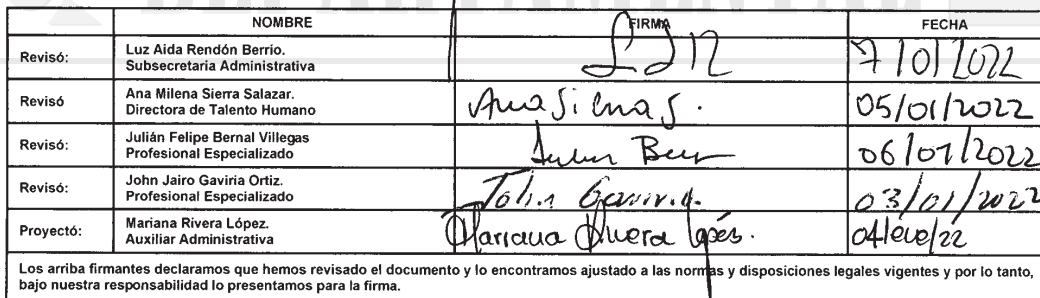 NOMBRE FIRMA FECHA
Revisó: Luz Aida Rendón Berrio.
Subsecretaria Administrativa 7/01/2022
Revisó Ana Milena Sierra Salazar.
Directora de Talento Humano Ana Sierra S. 05/01/2022
Revisó: Julián Felipe Bernal Villegas
Profesional Especializado 06/01/2022
Revisó: John Jairo Gaviria Ortiz.
Profesional Especializado John Gaviria. 03/01/2022
Proyectó: Mariana Rivera López.
Auxiliar Administrativa Mariana Rivera López. 04/ene/22
Los arriba firmantes declaramos que hemos revisado el documento y lo encontramos ajustado a las normas y disposiciones legales vigentes y por lo tanto,
bajo nuestra responsabilidad lo presentamos para la firma.